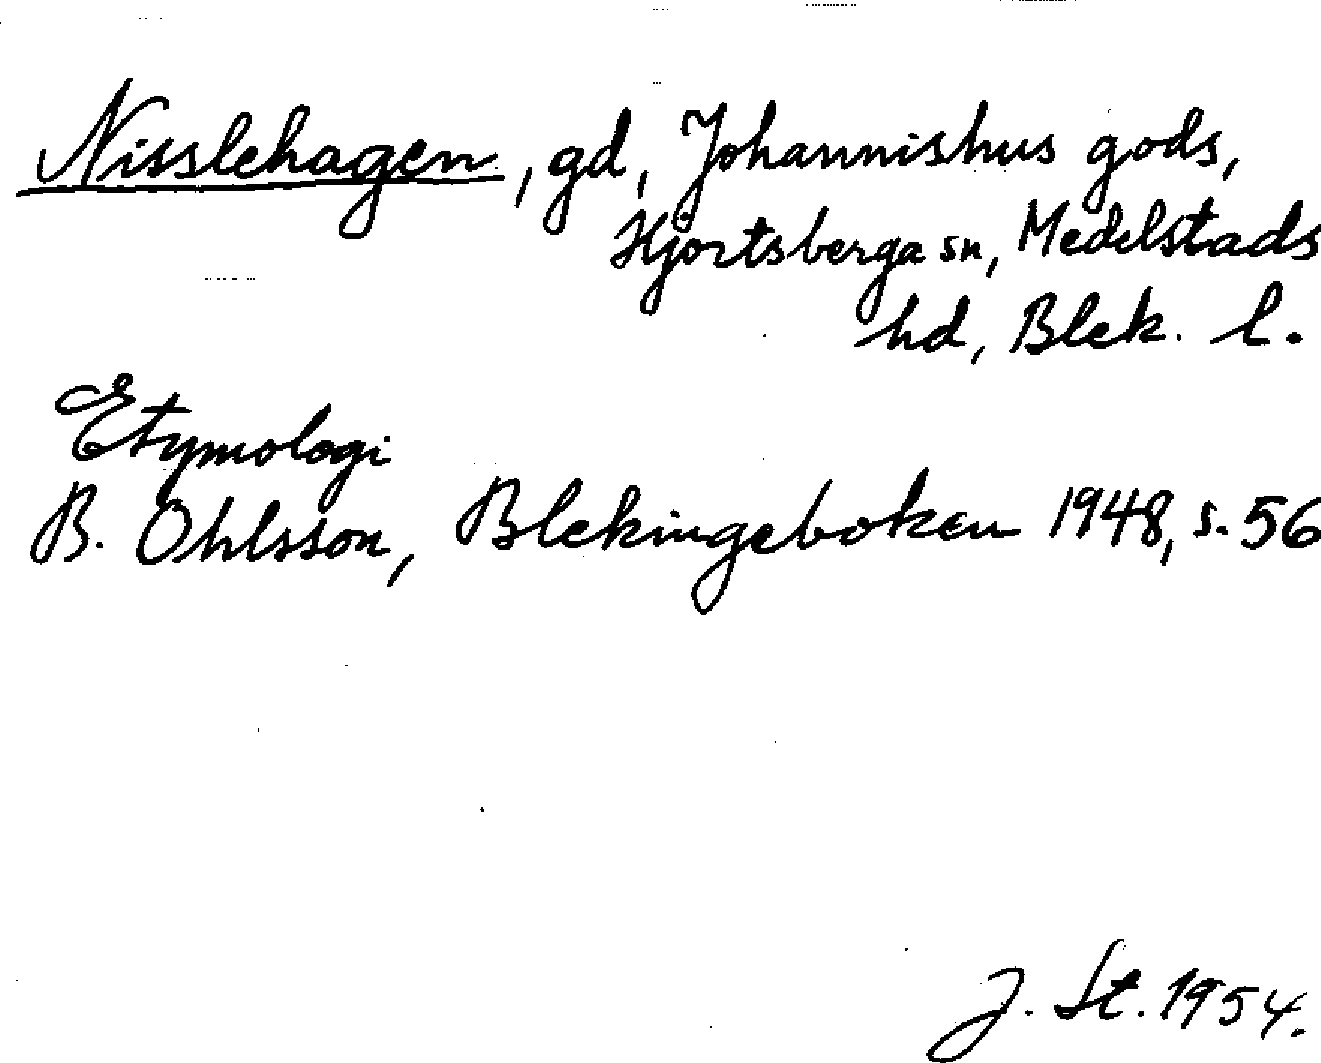 Nisslehagen, gd, Johannishus gods,
Hjortsberga sn, Medelstads
hd, Blek. l.
Etymologi
B. Ohlsson, Blekingeboken 1948, s. 56
J. St. 1954.